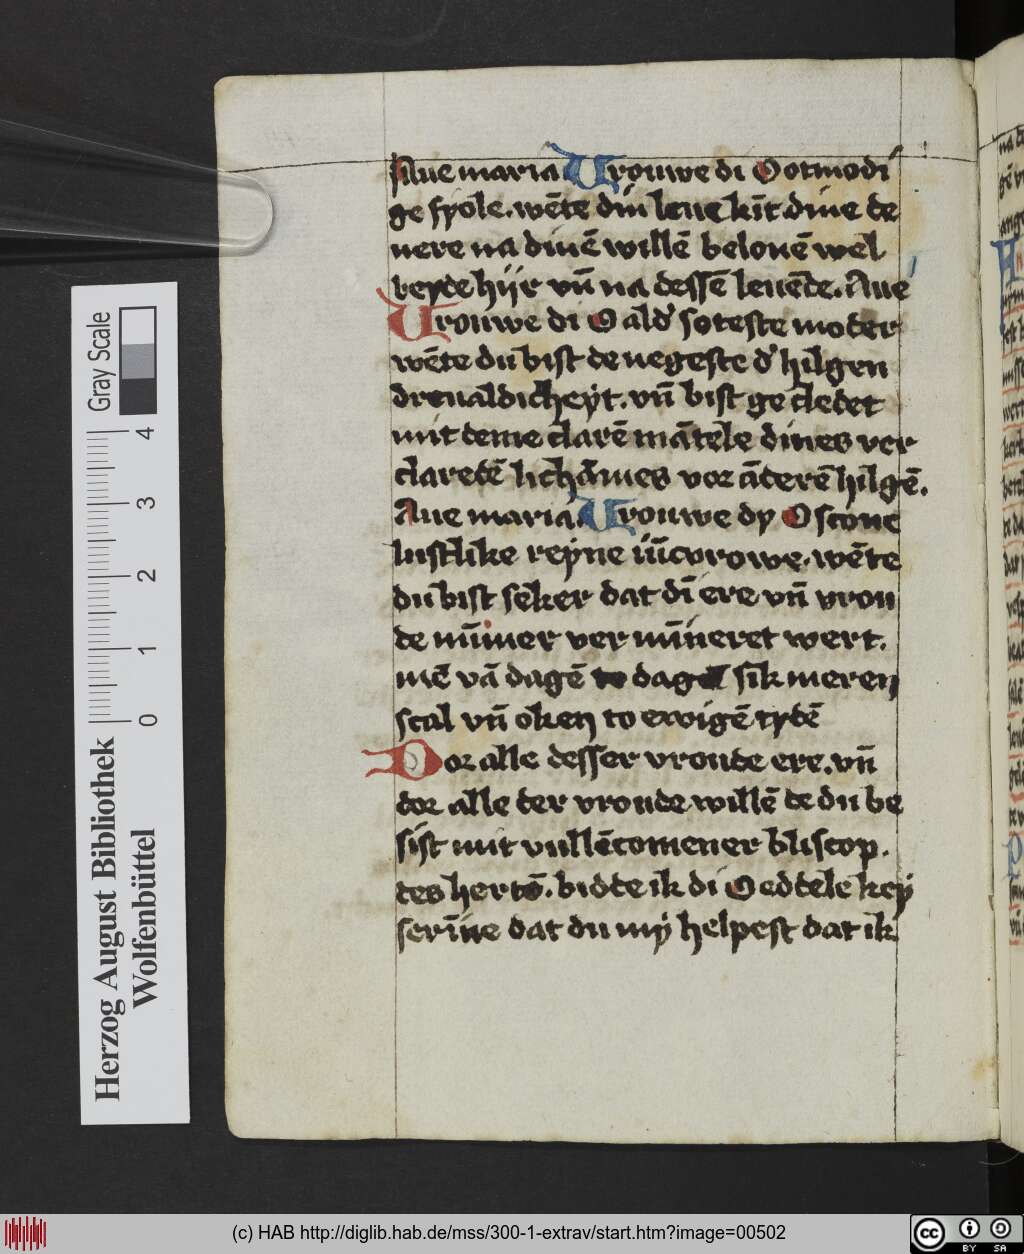 Aue maria Urouwe di Ootmodi
ge spole. wēte din leue kīt. dine de
nere na dinē willē belonē wel
beyde hijr vn̄ na dessē leuēde. Aue
Urouwe di O ald' soteste moder
wēte du bist de negeste d' hilgen
dreualdicheyt. vn̄ bist ge cledet
mit deme clarē mātele dines ver
claredē lichāmes vor āderē hilgē.
Aue maria Urouwe dy O scone
lustlike reyne iūcvrowe. wēte
du bist seker dat dī ere vn̄ vrou
de nūmer ver mīneret wert.
mē vā dagē to dage sik meren
scal vn̄ oken to ewigē tydē
Dor alle desser vroude ere. vn̄
dor alle der vroude willē de du be
sist mit vullēcomener bliscop.
des hertē. bidde ik di O edtele key
serīne dat du my helpest dat ik
Gray Scale
0 1 2 3 4
Herzog August Bibliothek
Wolfenbüttel
(c) HAB http://diglib.hab.de/mss/300-1-extrav/start.htm?image=00502
cc BY SA